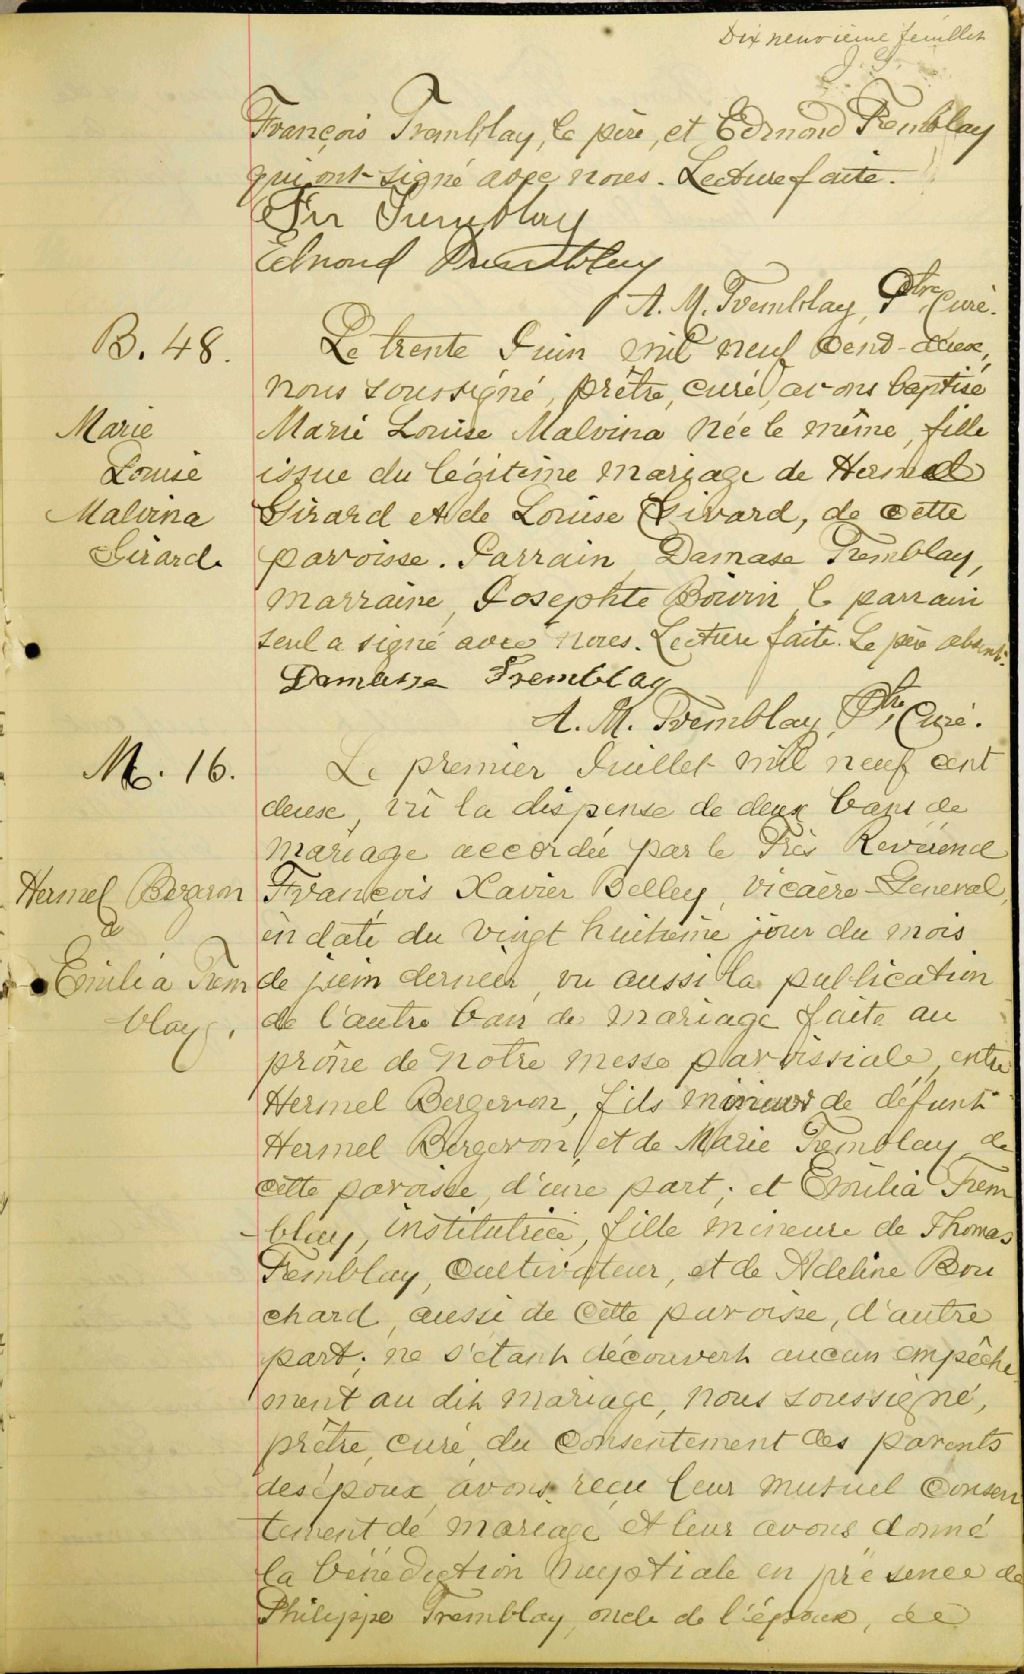 Dix neuvième feuillet
J. G.
François Tremblay, le père, et Edmond Tremblay
qui ont signé avec nous. Lecture faite.
Frs Tremblay
Edmond Tremblay
A. M. Tremblay, Ptre Curé.
B. 48.
Le trente Juin mil neuf cent-deux,
nous soussigné, prêtre, curé, avons baptisé
Marie
Louise
Malvina
Girard.
Marie Louise Malvina née le même, fille
issue du légitime mariage de Hermel
Girard et de Louise Girard, de cette
paroisse. Parrain, Damase Tremblay,
marraine, Josephte Boivin, le parrain
seul a signé avec nous. Lecture faite. Le père absent.
Damasse Tremblay
A. M. Tremblay, Ptre, Curé.
M. 16.
Le premier Juillet mil neuf cent
deux, vu la dispense de deux bans de
mariage accordée par le Très Révérend
Hermel Bergeron
&
Emilia Trem
blay.
François Xavier Belley, vicaire-Général,
en date du vingt huitième jour du mois
de juin dernier, vu aussi la publication
de l'autre ban de mariage faite au
prône de notre messe paroissiale, entre
Hermel Bergeron, fils mineur de défunt
Hermel Bergeron, et de Marie Tremblay, de
cette paroisse, d'une part; et Emilia Trem
-blay, institutrice, fille mineure de Thomas
Tremblay, cultivateur, et de Adeline Bou
chard, aussi de cette paroisse, d'autre
part; ne s'étant découvert aucun empêche
ment au dit mariage, nous soussigné,
prêtre, curé, du consentement des parents
des époux, avons reçu leur mutuel consen
tement de mariage et leur avons donné
la bénédiction nuptiale en présence de
Philippe Tremblay, oncle de l'époux, de